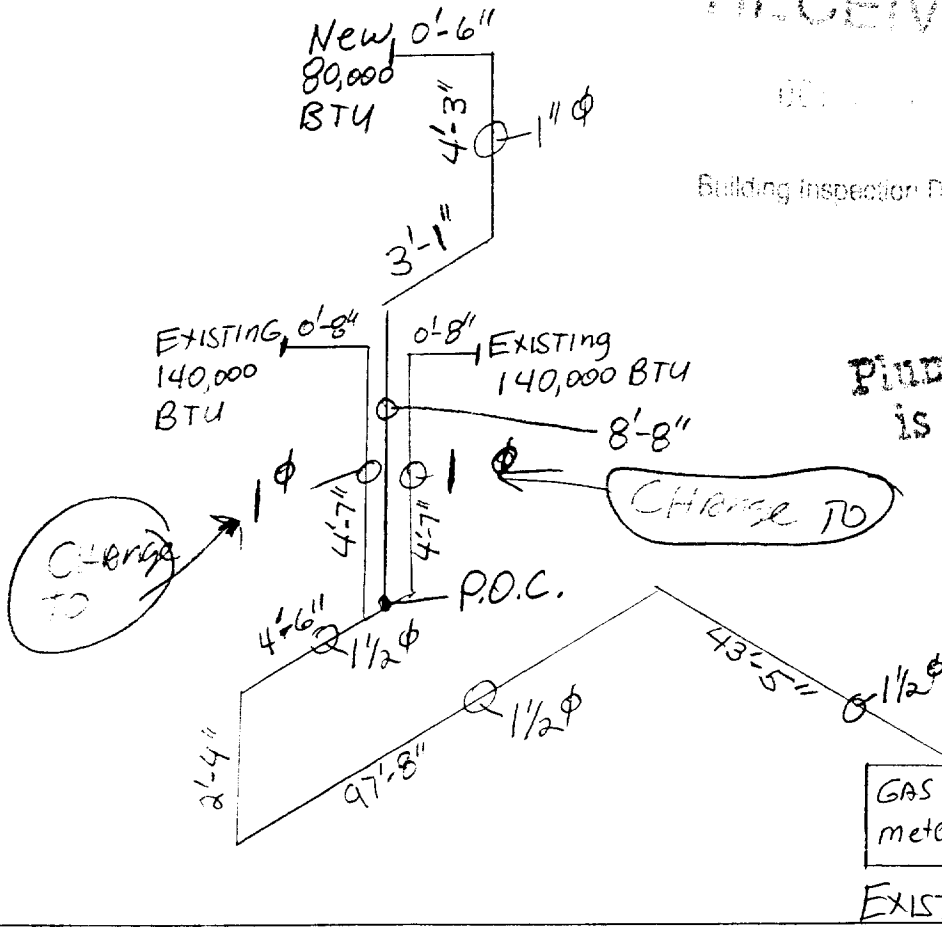 New 0'-6"
80,000
BTU
4'-3"
1" φ
Building Inspection
3'-1"
EXISTING 0'-8"
140,000
BTU
0'-8"
EXISTING
140,000 BTU
is
8'-8"
1 φ
4'-7"
4'-7"
1 φ
CHANGE TO
CHANGE
TO
P.O.C.
4'-6"
1 1/2 φ
43'-5"
1 1/2 φ
1 1/2 φ
2'-4"
97'-8"
GAS
mete
EXIST